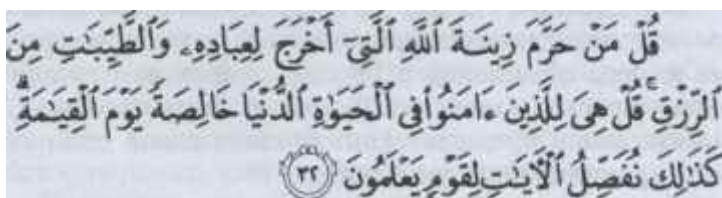 قُلْ مَنْ حَرَّمَ زِينَةَ ٱللَّهِ ٱلَّتِىٓ أَخْرَجَ لِعِبَادِهِۦ وَٱلطَّيِّبَٰتِ مِنَ
ٱلرِّزْقِ ۚ قُلْ هِىَ لِلَّذِينَ ءَامَنُوا۟ فِى ٱلْحَيَوٰةِ ٱلدُّنْيَا خَالِصَةً يَوْمَ ٱلْقِيَٰمَةِ ۗ
كَذَٰلِكَ نُفَصِّلُ ٱلْءَايَٰتِ لِقَوْمٍ يَعْلَمُونَ ٣٢